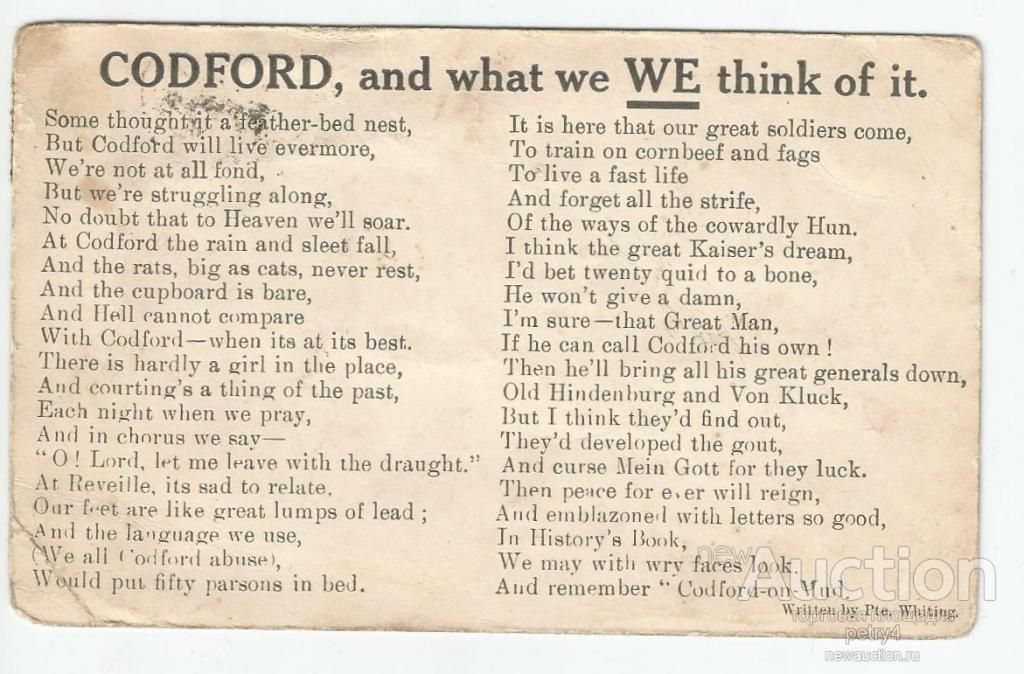 CODFORD, and what we WE think of it.
Some thought it a feather-bed nest,
But Codford will live evermore,
We're not at all fond,
But we're struggling along,
No doubt that to Heaven we'll soar.
At Codford the rain and sleet fall,
And the rats, big as cats, never rest,
And the cupboard is bare,
And Hell cannot compare
With Codford—when its at its best.
There is hardly a girl in the place,
And courting's a thing of the past,
Each night when we pray,
And in chorus we say—
"O! Lord, let me leave with the draught."
At Reveille, its sad to relate,
Our feet are like great lumps of lead ;
And the language we use,
(We all Codford abuse),
Would put fifty parsons in bed.
It is here that our great soldiers come,
To train on cornbeef and fags
To live a fast life
And forget all the strife,
Of the ways of the cowardly Hun.
I think the great Kaiser's dream,
I'd bet twenty quid to a bone,
He won't give a damn,
I'm sure—that Great Man,
If he can call Codford his own !
Then he'll bring all his great generals down,
Old Hindenburg and Von Kluck,
But I think they'd find out,
They'd developed the gout,
And curse Mein Gott for they luck.
Then peace for ever will reign,
And emblazoned with letters so good,
In History's Book,
We may with wry faces look.
And remember " Codford-on-Mud.
Written by Pte. Whiting.
newAuction
торговая площадка
petry4
newauction.ru